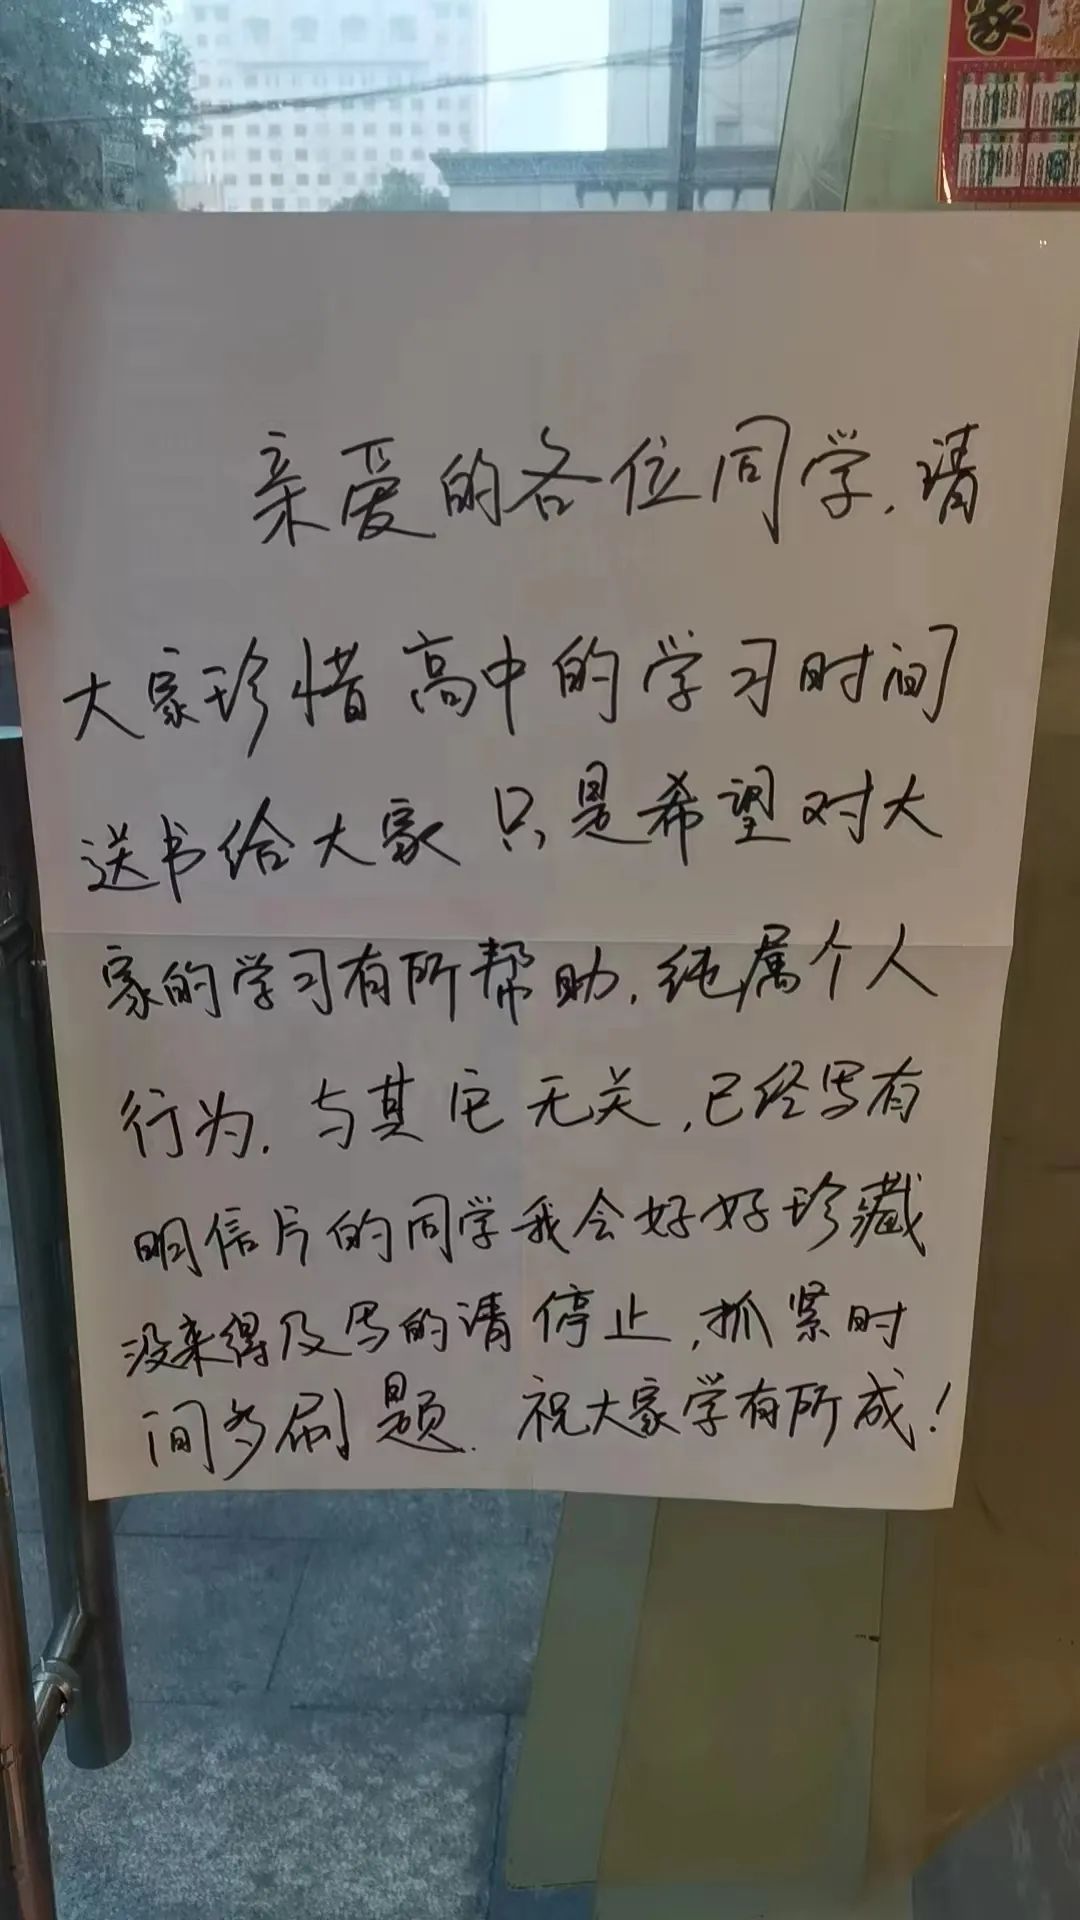 家
亲爱的各位同学,请
大家珍惜高中的学习时间
送书给大家只是希望对大
家的学习有所帮助,纯属个人
行为,与其它无关,已经写有
明信片的同学我会好好珍藏
没来得及写的请停止,抓紧时
间多刷题.祝大家学有所成!